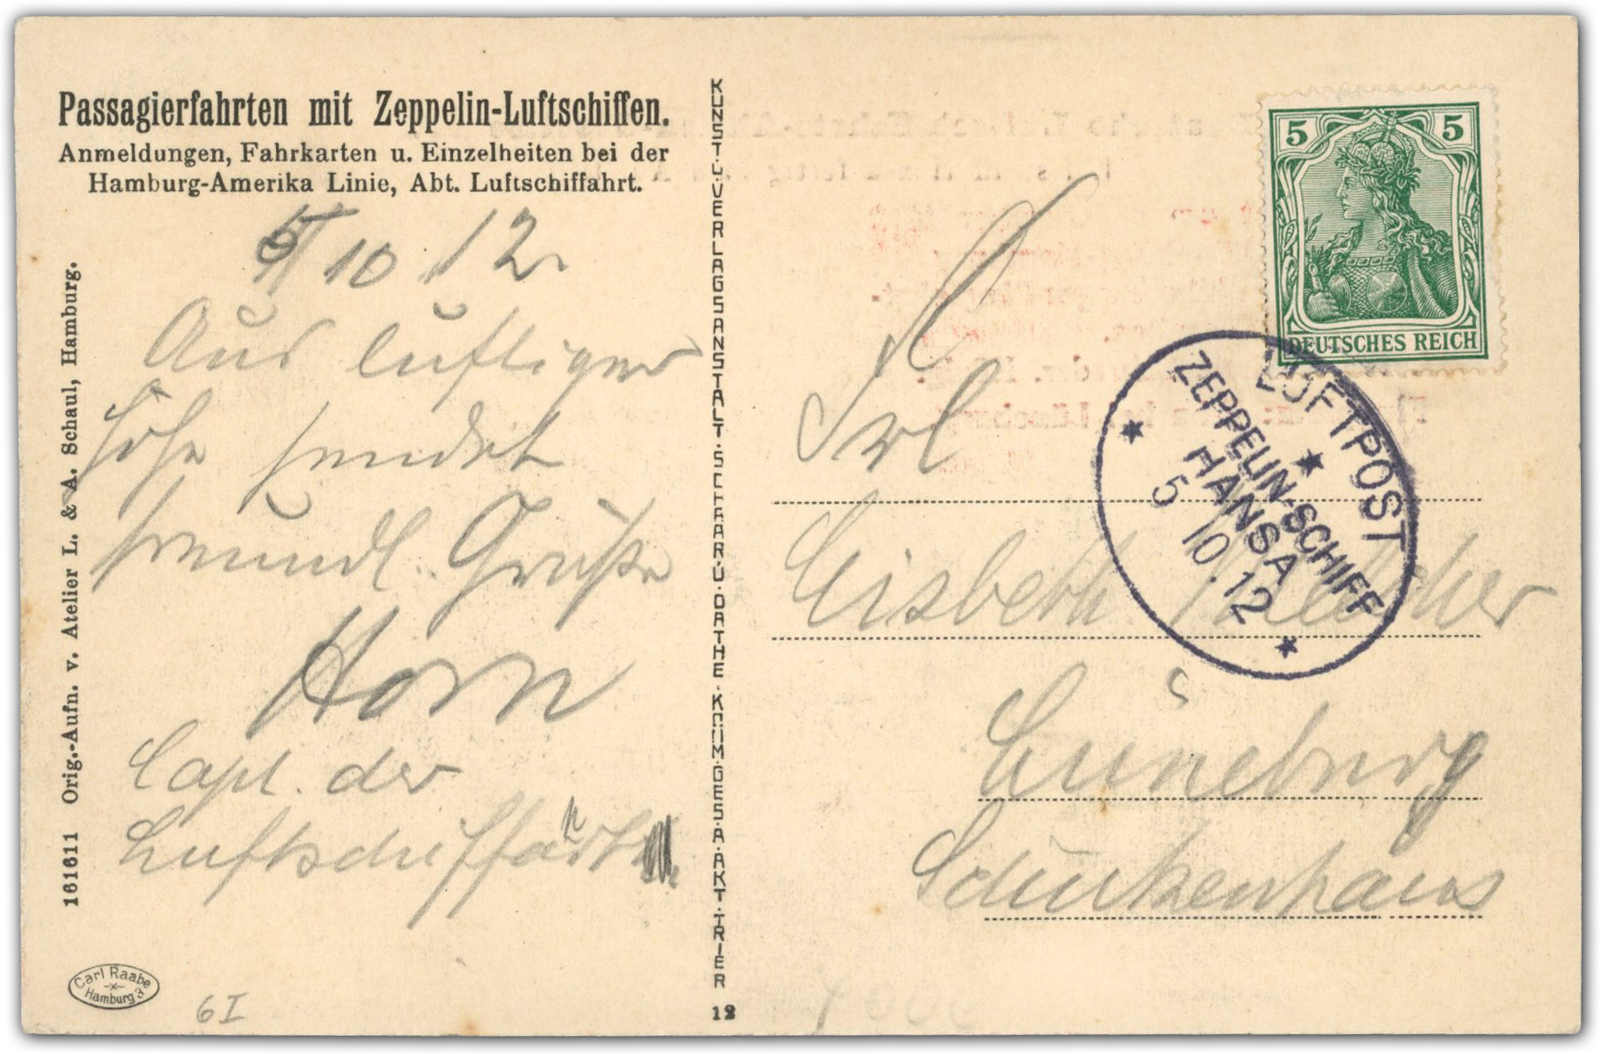 Passagierfahrten mit Zeppelin-Luftschiffen.
Anmeldungen, Fahrkarten u. Einzelheiten bei der
Hamburg-Amerika Linie, Abt. Luftschiffahrt.
10 12.
Aus luftiger
Höhe sendet
freundl. Grüße
Horn
Capt. der
161611 Orig.-Aufn. v. Atelier L. & A. Schaul, Hamburg.
Carl Raabe
Hamburg 3
6 I
KUNST- U. VERLAGSANSTALT SCHAAR U. DATHE KOM. GES. A. AKT. TRIER
12
5 5
DEUTSCHES REICH
LUFTPOST
ZEPPELIN-SCHIFF
HANSA
5 10.12
Frl
Lüneburg